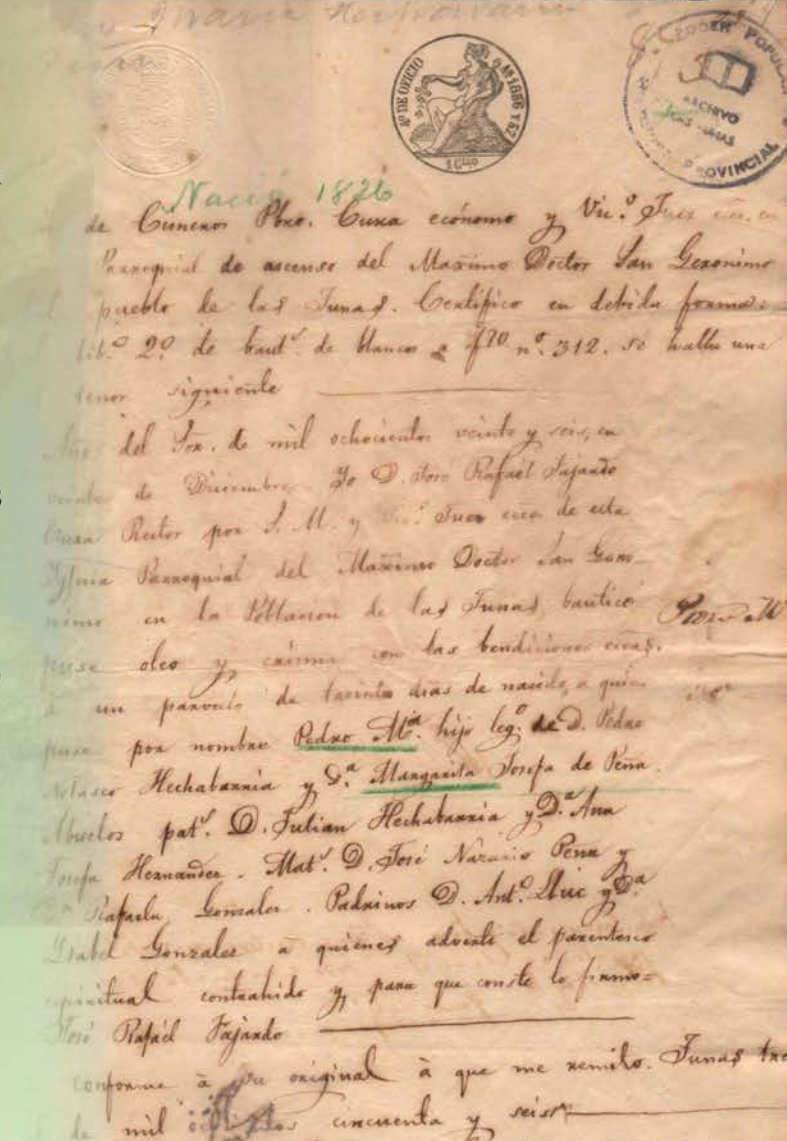 Maria Hechavarria
4º DE OFICIO
AÑOS 1856 Y 57
PODER POPULAR
ARCHIVO
LAS TUNAS
PROVINCIAL
Nació 1826
de Cuneros Pbro. Cura ecónomo y Vic.º Juez ecc. en
Parroquial de ascenso del Maximo Doctor San Geronimo
pueblo de las Tunas. Certifico en debida forma:
lib.º 2º de baut.s de blancos a f 70 nº. 312. se halla una
tenor siguiente
Año del Sor. de mil ochocientos veinte y seis, en
veinte de Diciembre Yo D. José Rafael Fajardo
Cura Rector por S. M. y Vic.º Juez ecco. de esta
Iglesia Parroquial del Maximo Doctor San Gero-
nimo en la Poblacion de las Tunas, bauticé
puse oleo y crisma con las bendiciones
à un parvulo de dias de nacido, a quien
puse por nombre Pedro Mª. hijo leg.º de D. Pedro
Nolasco Hechabarria y D.ª Margarita Josefa de Peña.
Abuelos pat.s D. Julian Hechabarria y D.ª Ana
Josefa Hernandez. Mat.s D. José Nazario Pena y
D.ª Rafaela Gonzales. Padrinos D. Ant.º y D.ª
Ysabel Gonzales à quienes adverti el parentesco
espiritual contrahido y para que conste lo firmo=
José Rafael Fajardo
conforme à su original à que me remito. Tunas
de mil cincuenta y seis